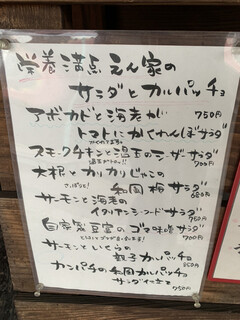 栄養満点 えん家の
サラダとカルパッチョ
アボカドと海老が 750円
トマトにかくれんぼサラダ
スモークチキンと温玉のシーザーサラダ
700円
大根とカリカリじゃこの
さっぱりと!
和風 梅 サラダ
680円
サーモンと海老の
イタリアンシーフードサラダ
750円
自家製豆腐のゴマ味噌サラダ
700円
サーモンといくらの
親子カルパッチョ
850円
カンパチの和風カルパッチョ
750円